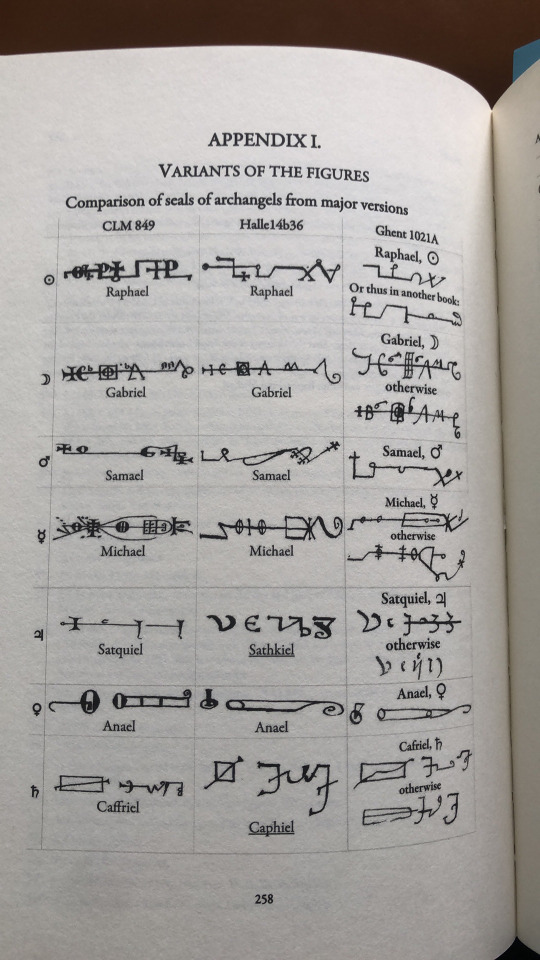 APPENDIX I.
VARIANTS OF THE FIGURES
Comparison of seals of archangels from major versions
CLM 849 Halle14b36 Ghent 1021A
☉ Raphael Raphael Raphael, ☉
Or thus in another book:
☽ Gabriel Gabriel Gabriel, ☽
otherwise
♂ Samael Samael Samael, ♂
☿ Michael Michael Michael, ☿
otherwise
♃ Satquiel Sathkiel Satquiel, ♃
otherwise
♀ Anael Anael Anael, ♀
♄ Caffriel Caphiel Cafriel, ♄
otherwise
258